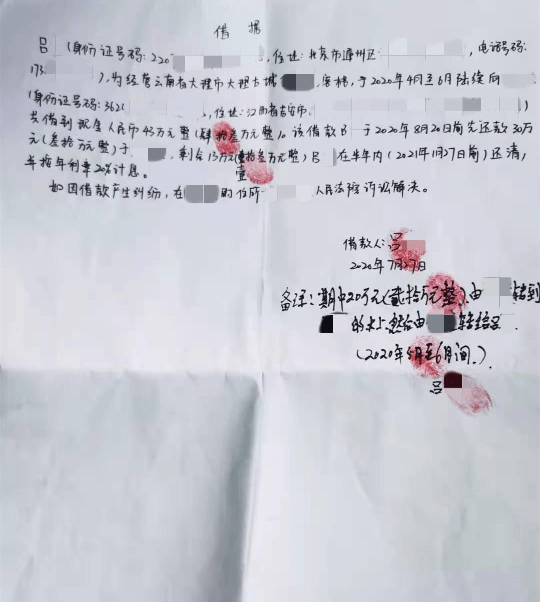 借据
吕 (身份证号码:220 ,住址:北京市通州区 ,电话号码:
173 ),为经营云南省大理市大理古城 客栈,于2020年4月至6月陆续向
(身份证号码:362 ,住址:江西省吉安市 )
共借到现金人民币45万元整(肆拾 万元整)。该借款吕 于2020年8月20日前先还款30万
元(叁拾万元整)于 ,剩余15万元(壹拾 万元整)吕 在半年内(2021年1月27日前)还清,
壹
并按年利率20%计息。
如因借款产生纠纷,在 的住所 人民法院诉讼解决。
借款人:吕
2020年7月27日
备注:其中20万元(贰拾万元整)由 转到
的卡上,然后由 转给吕 .
(2020年 月至6月间.).
吕